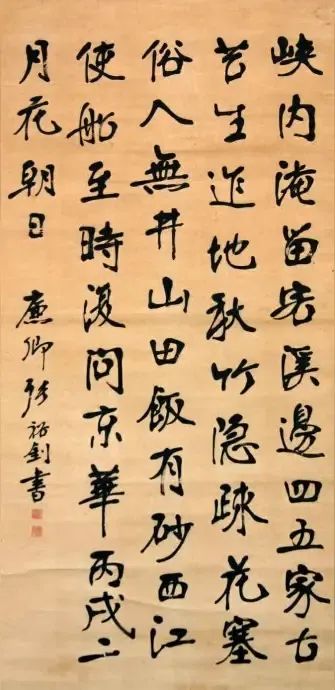 峽內淹留客溪邊四五家古
苔生迮地秋竹隱疎花塞
俗人無井山田飯有砂西江
使船至時復問京華丙戌二
月花朝日
廉卿張裕釗書